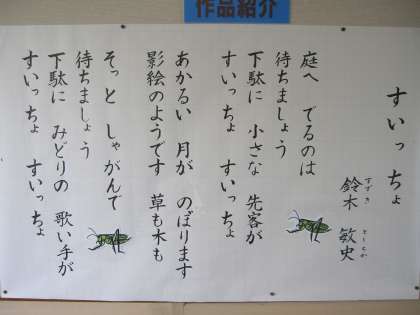 作品紹介
すいっちょ
鈴木 敏史
すずき としちか
庭へ でるのは
待ちましょう
下駄に 小さな 先客が
すいっちょ すいっちょ
あかるい 月が のぼります
影絵のようです 草も木も
そっと しゃがんで
待ちましょう
下駄に みどりの 歌い手が
すいっちょ すいっちょ